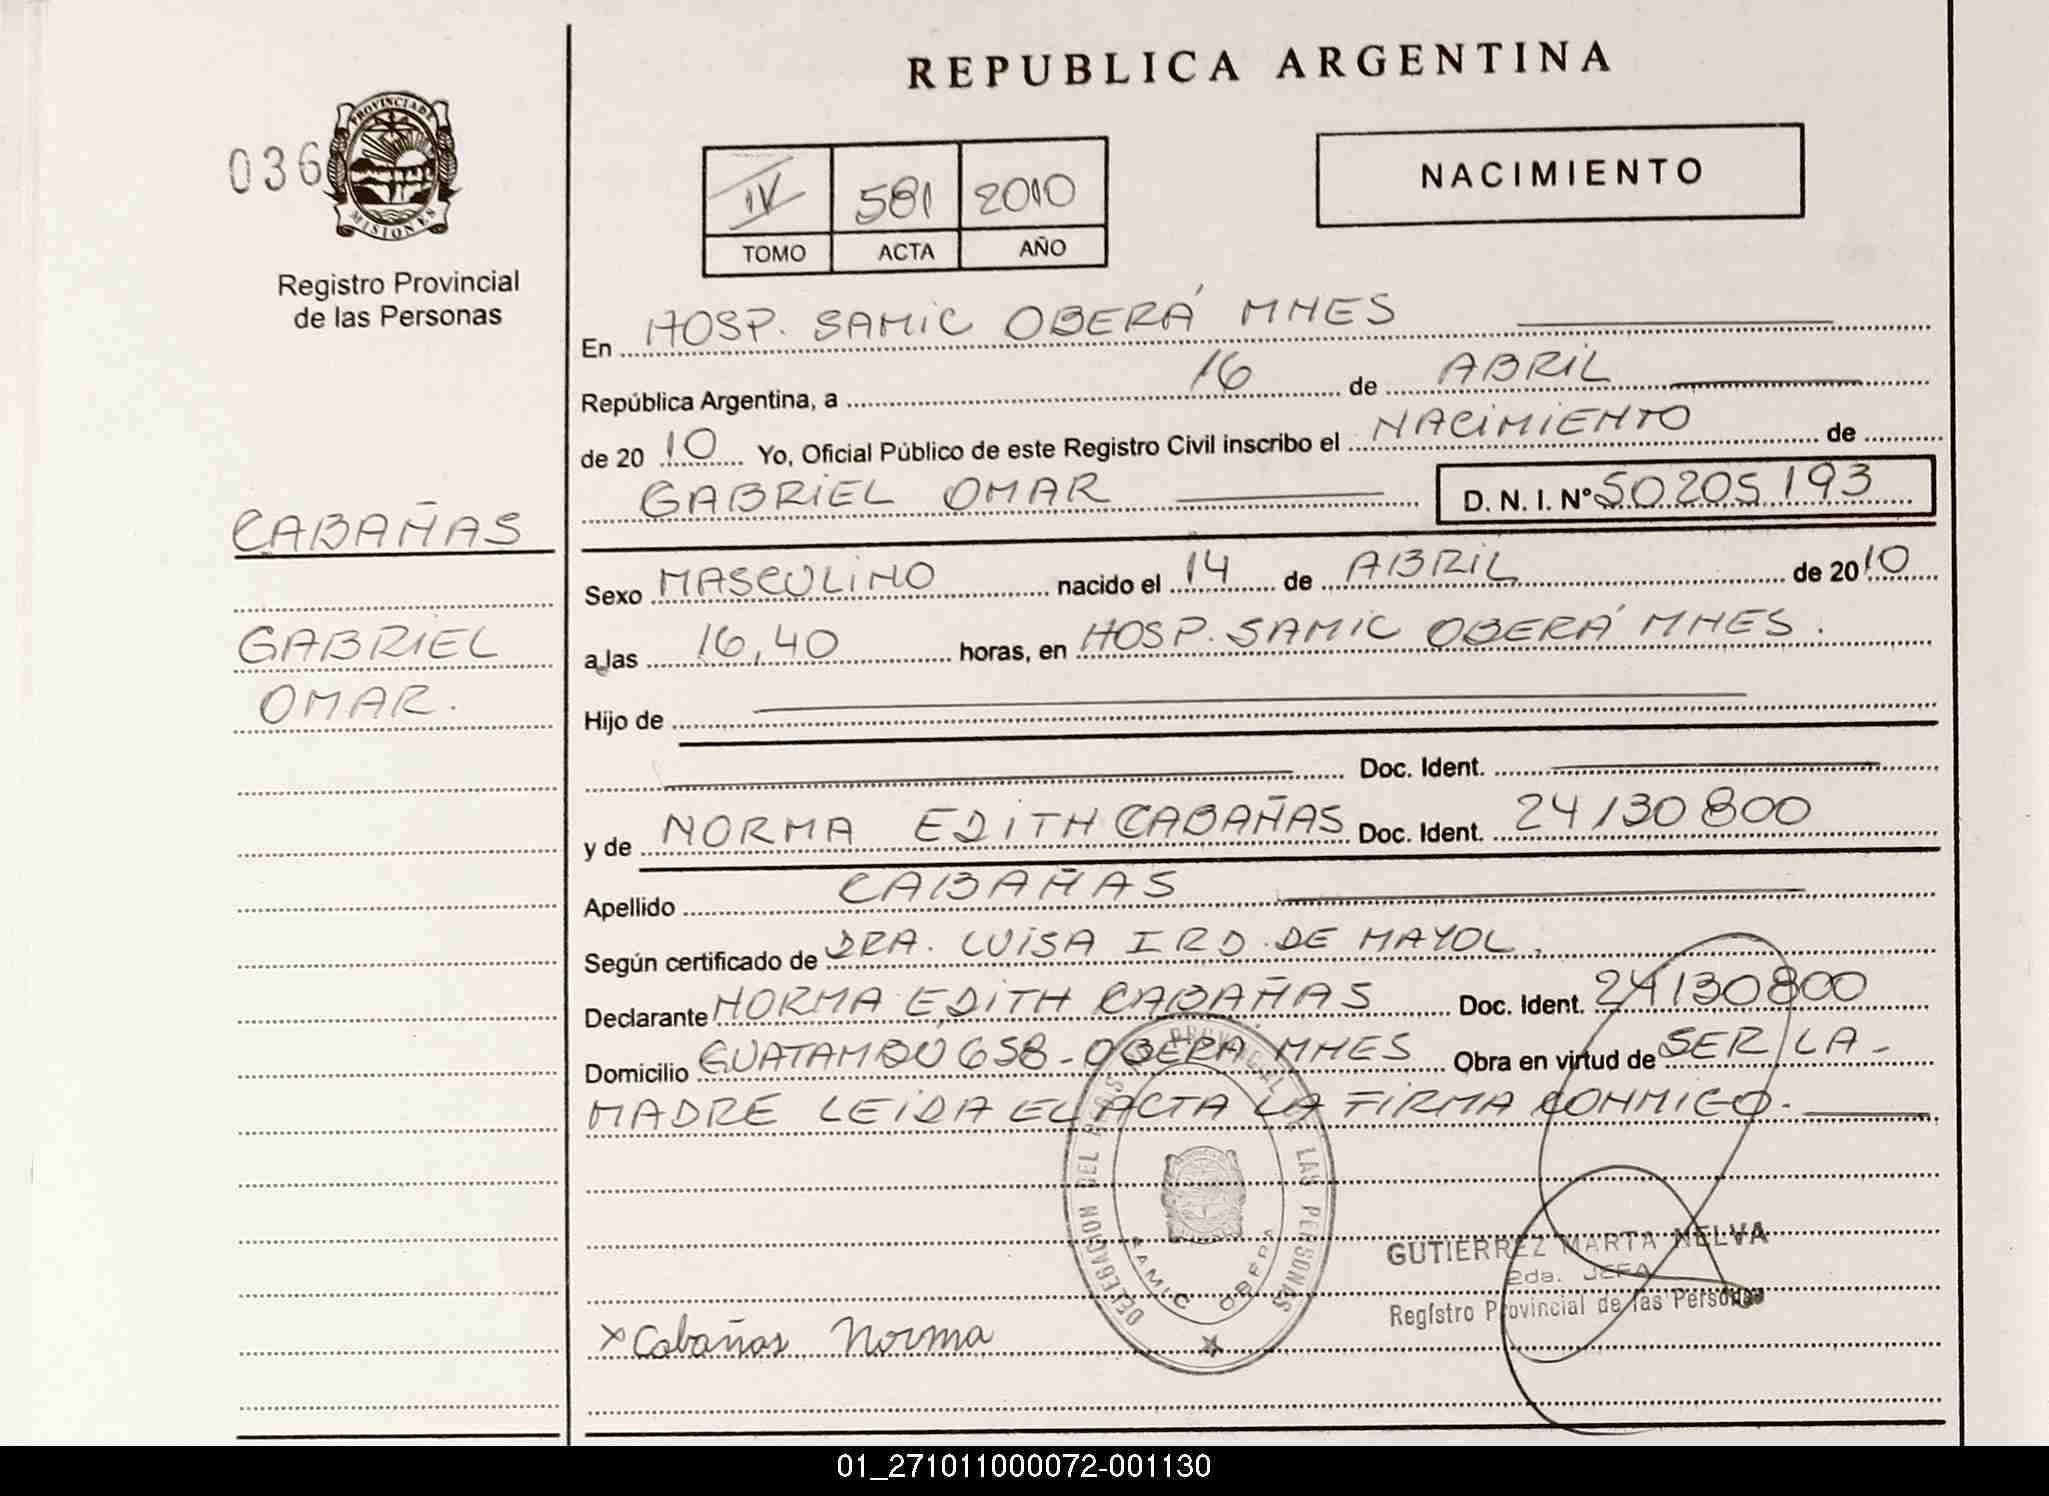 REPUBLICA ARGENTINA
036
PROVINCIA DE
MISIONES
Registro Provincial
de las Personas
IV 581 2010
TOMO ACTA AÑO
NACIMIENTO
En HOSP. SAMIC OBERÁ MNES
República Argentina, a 16 de ABRIL
de 2010 Yo, Oficial Público de este Registro Civil inscribo el NACIMIENTO de
GABRIEL OMAR D. N. I. Nº 50.205.193
CABAÑAS
GABRIEL
OMAR.
Sexo MASCULINO nacido el 14 de ABRIL de 2010
a las 16,40 horas, en HOSP. SAMIC OBERÁ MNES.
Hijo de
Doc. Ident.
y de NORMA EDITH CABAÑAS Doc. Ident. 24130800
Apellido CABAÑAS
Según certificado de DRA. LUISA I R D. DE MAYOL.
Declarante NORMA EDITH CABAÑAS Doc. Ident. 24130800
Domicilio GUATAMBU 658 - OBERA MNES Obra en virtud de SER LA -
MADRE LEIDA EL ACTA LA FIRMA CONMIGO.
DELEGACION DEL REGIS PROVINCIAL DE LAS PERSONAS
SAMIC OBERA
GUTIERREZ MARTA NELVA
2da. JEFA
Registro Provincial de las Personas
x Cabañas Norma
01_271011000072-001130